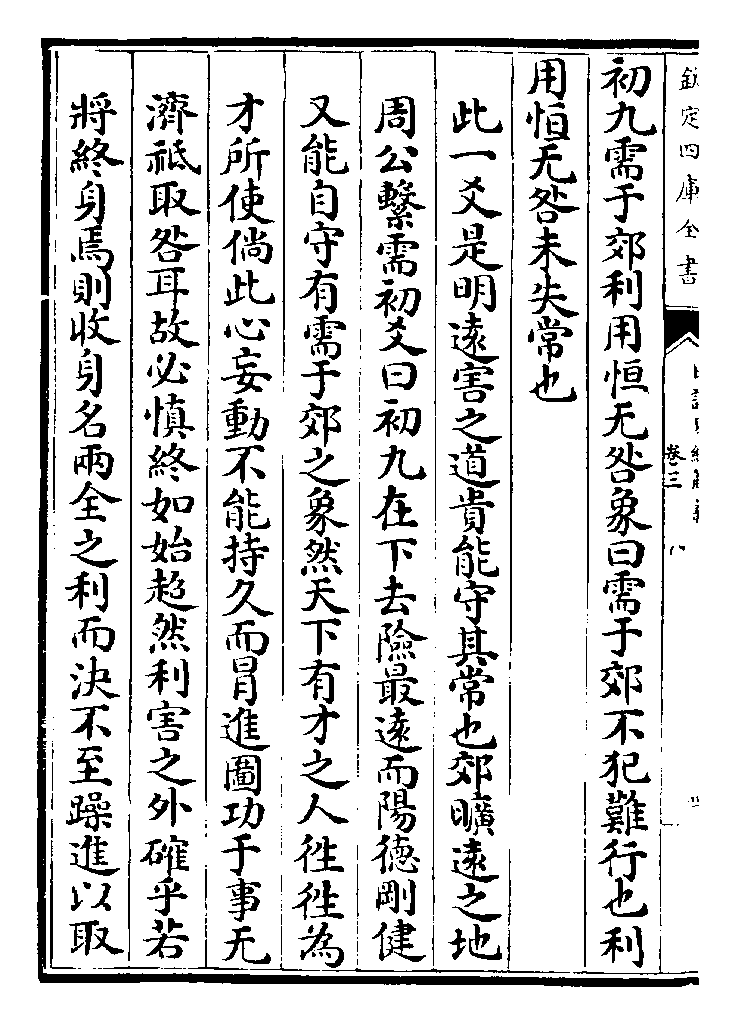 欽定四庫全書
卷三
初九需于郊利用恒无咎象曰需于郊不犯難行也利
用恒无咎未失常也
此一爻是明遠害之道貴能守其常也郊曠遠之地
周公繫需初爻曰初九在下去險最遠而陽德剛健
又能自守有需于郊之象然天下有才之人徃徃為
才所使倘此心妄動不能持久而冐進圖功于事无
濟祗取咎耳故必慎終如始超然利害之外確乎若
將終身焉則收身名兩全之利而決不至躁進以取